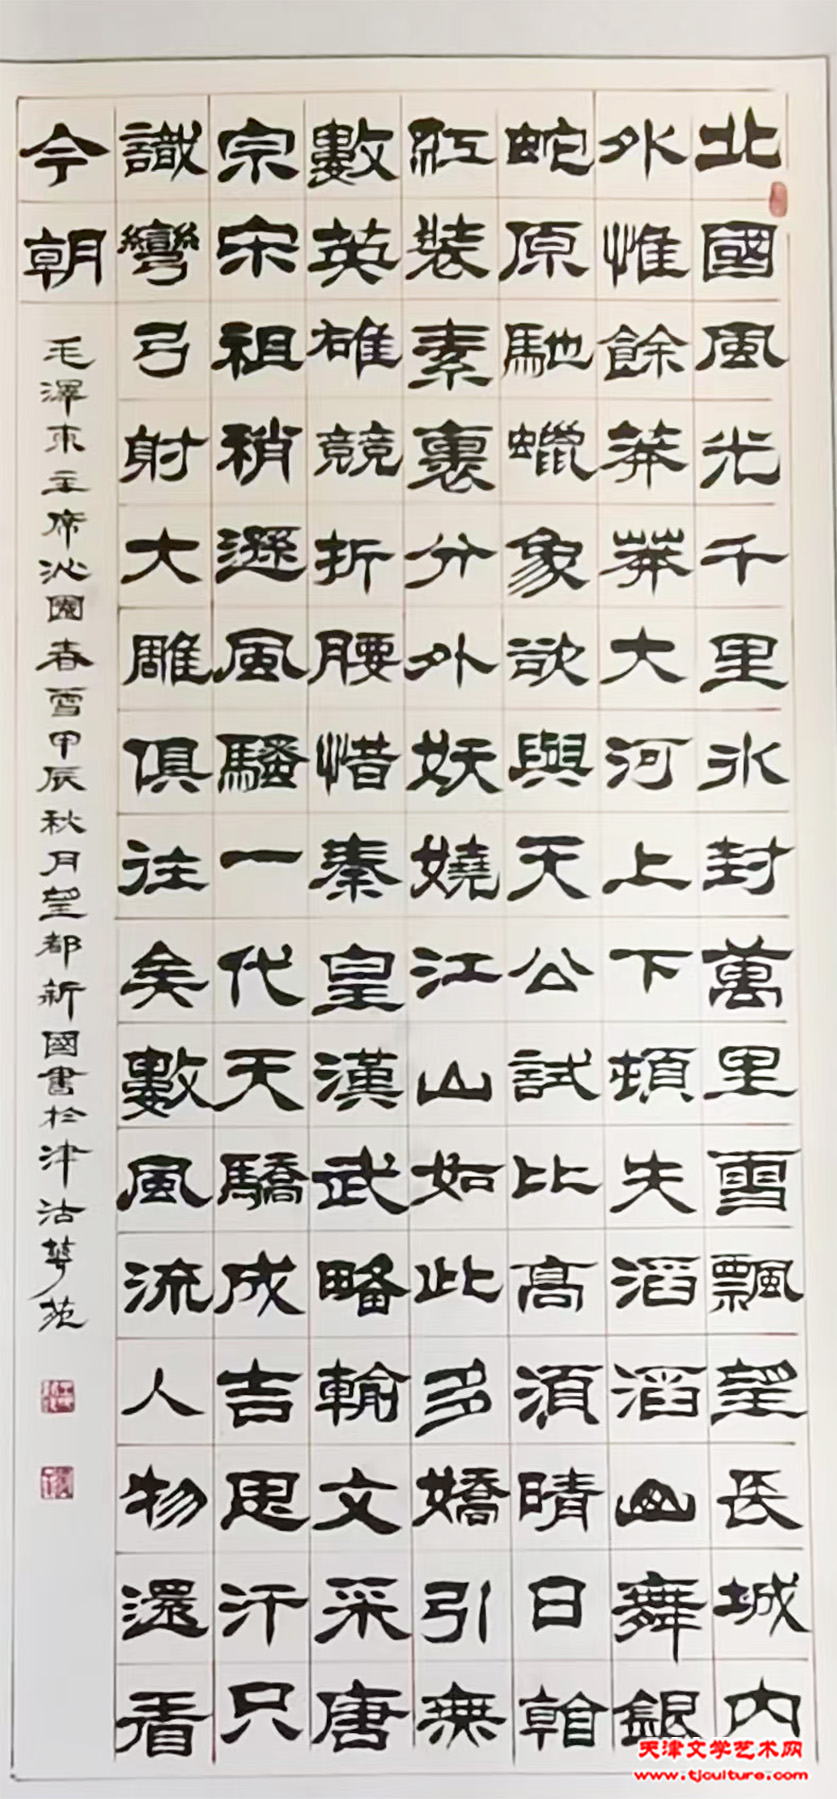 北國風光千里冰封萬里雪飄望長城內
外惟餘莽莽大河上下頓失滔滔山舞銀
蛇原馳蠟象欲與天公試比高須晴日看
紅裝素裹分外妖嬈江山如此多嬌引無
數英雄競折腰惜秦皇漢武略輸文采唐
宗宋祖稍遜風騷一代天驕成吉思汗只
識彎弓射大雕俱往矣數風流人物還看
今朝
毛澤東主席沁園春雪甲辰秋月望都新國書於津沽華苑
天津文学艺术网
www.tjculture.com